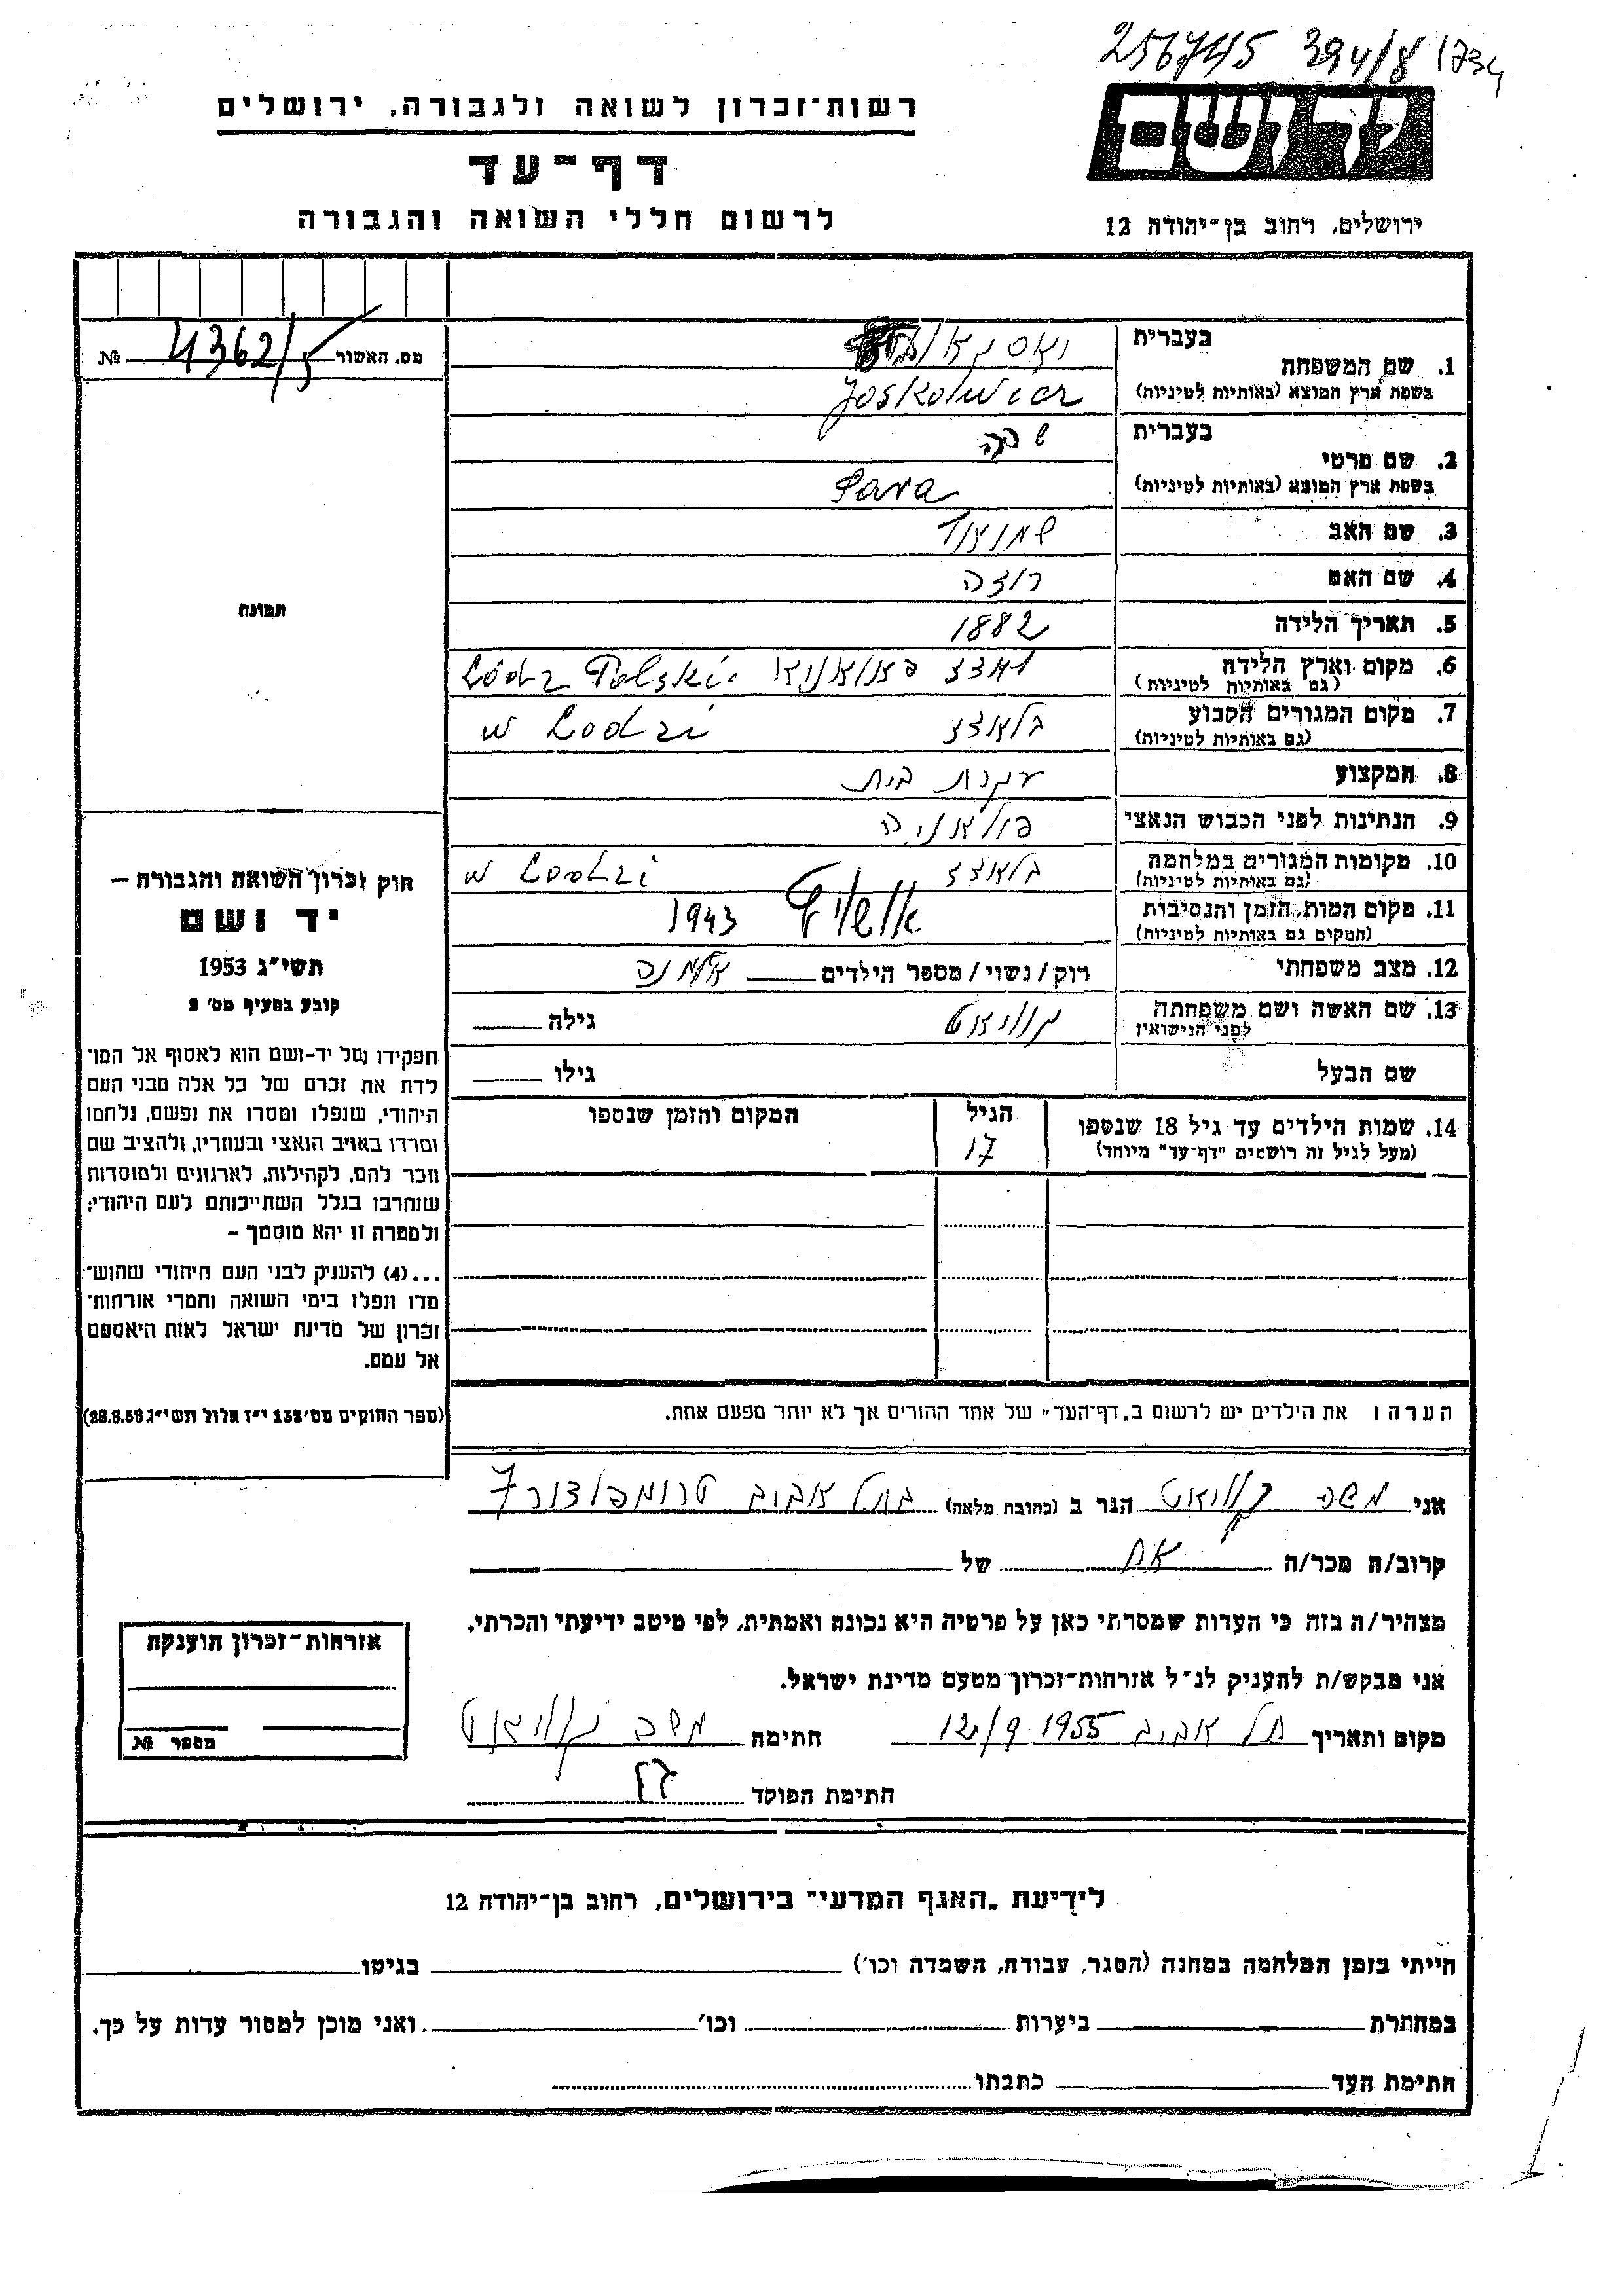 256745 394/8 1734
רשות־זכרון לשואה ולגבורה, ירושלים
דף־עד
לרשום חללי השואה והגבורה
יד ושם
ירושלים, רחוב בן־יהודה 12
מס. האשור 4362/5 №
תמונה
1. שם המשפחה
בעברית
בשפת ארץ המוצא (באותיות לטיניות) Joskowicz
2. שם פרטי
בעברית שרה
בשפת ארץ המוצא (באותיות לטיניות) Sara
3. שם האב
4. שם האם רוזה
5. תאריך הלידה 1882
6. מקום וארץ הלידה
(גם באותיות לטיניות) לאדז Łódz Polski
7. מקום המגורים הקבוע
(גם באותיות לטיניות) בלאדז w Łodzi
8. המקצוע עקרת בית
9. הנתינות לפני הכבוש הנאצי פולאניה
10. מקומות המגורים במלחמה
(גם באותיות לטיניות) בלאדז w Łodzi
11. מקום המות, הזמן והנסיבות
(המקום גם באותיות לטיניות) 1943
12. מצב משפחתי רוק/נשוי/מספר הילדים אלמנה
13. שם האשה ושם משפחתה
לפני הנישואין גילה
שם הבעל גילו
14. שמות הילדים עד גיל 18 שנספו
(מעל לגיל זה רושמים "דף־עד" מיוחד)
הגיל
17
המקום והזמן שנספו
הערה: את הילדים יש לרשום ב"דף־העד" של אחד ההורים אך לא יותר מפעם אחת.
חוק זכרון השואה והגבורה –
יד ושם
תשי״ג 1953
קובע בסעיף מס׳ 2
תפקידו של יד-ושם הוא לאסוף אל המו־
לדת את זכרם של כל אלה מבני העם
היהודי, שנפלו ומסרו את נפשם, נלחמו
ומרדו באויב הנאצי ובעוזריו, ולהציב שם
וזכר להם, לקהילות, לארגונים ולמוסדות
שנחרבו בגלל השתייכותם לעם היהודי;
ולמטרה זו יהא מוסמך –
...(4) להעניק לבני העם היהודי שהוש־
מדו ונפלו בימי השואה והמרי אזרחות־
זכרון של מדינת ישראל לאות היאספם
אל עמם.
(ספר החוקים מס׳ 132 י״ז אלול תשי״ג 28.8.53)
אני משה הגר ב (כתובת מלאה) בתל אביב טרומפלדור 7
קרוב/ה מכר/ה של
מצהיר/ה בזה כי העדות שמסרתי כאן על פרטיה היא נכונה ואמתית, לפי מיטב ידיעתי והכרתי.
אני מבקש/ת להעניק לנ״ל אזרחות־זכרון מטעם מדינת ישראל.
מקום ותאריך תל אביב 12/9 1955 חתימה משה
חתימת הפוקד
אזרחות־זכרון הוענקה
מספר №
לידיעת „האגף המדעי״ בירושלים, רחוב בן־יהודה 12
הייתי בזמן המלחמה במחנה (הסגר, עבודה, השמדה וכו׳) בגיטו
במחתרת ביערות וכו׳ ואני מוכן למסור עדות על כך.
חתימת העד כתבתו